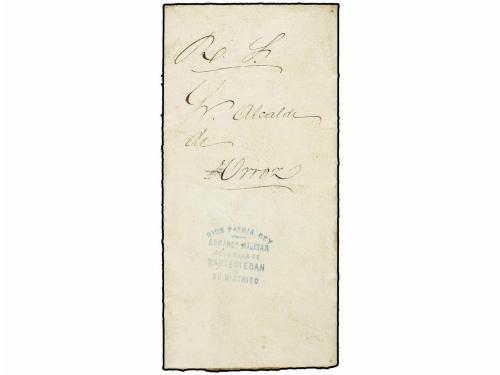 R. S.
Sr. Alcalde
de
Orroz
DIOS PATRIA REY
COMAND.ª MILITAR
DE LA VILLA DE
SANTESTEBAN
Y
SU DISTRITO